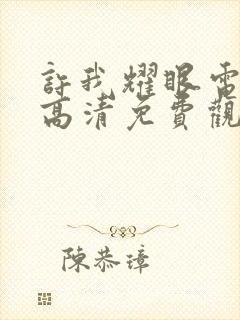 許我耀眼電
高清免費觀
陳恭璋